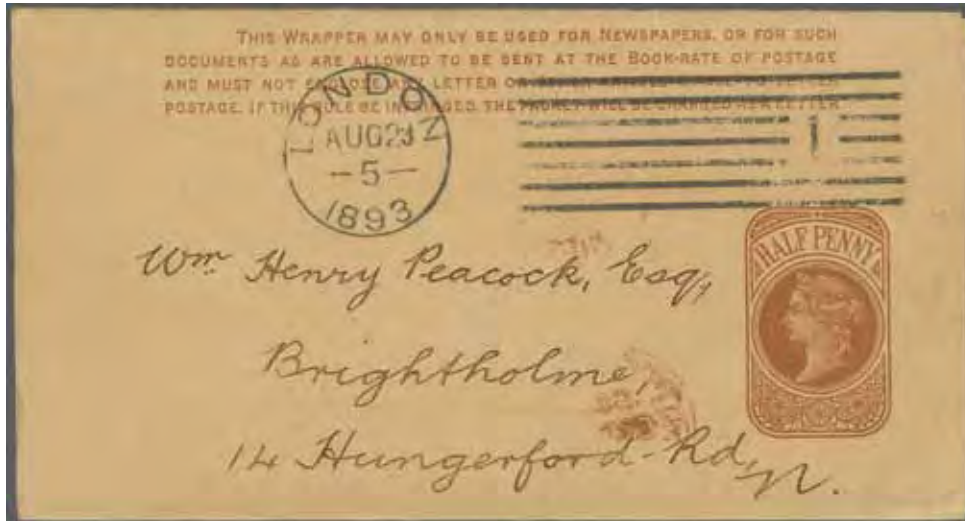 THIS WRAPPER MAY ONLY BE USED FOR NEWSPAPERS, OR FOR SUCH
DOCUMENTS AS ARE ALLOWED TO BE SENT AT THE BOOK-RATE OF POSTAGE
AND MUST NOT ENCLOSE ANY LETTER OR
POSTAGE. IF THIS RULE BE INFRINGED, THE PACKET WILL BE CHARGED AS A LETTER
LONDON
AUG 23
-5-
1893
1
HALF PENNY
Wm Henry Peacock, Esq,
Brightholme,
14 Hungerford Rd,
N.